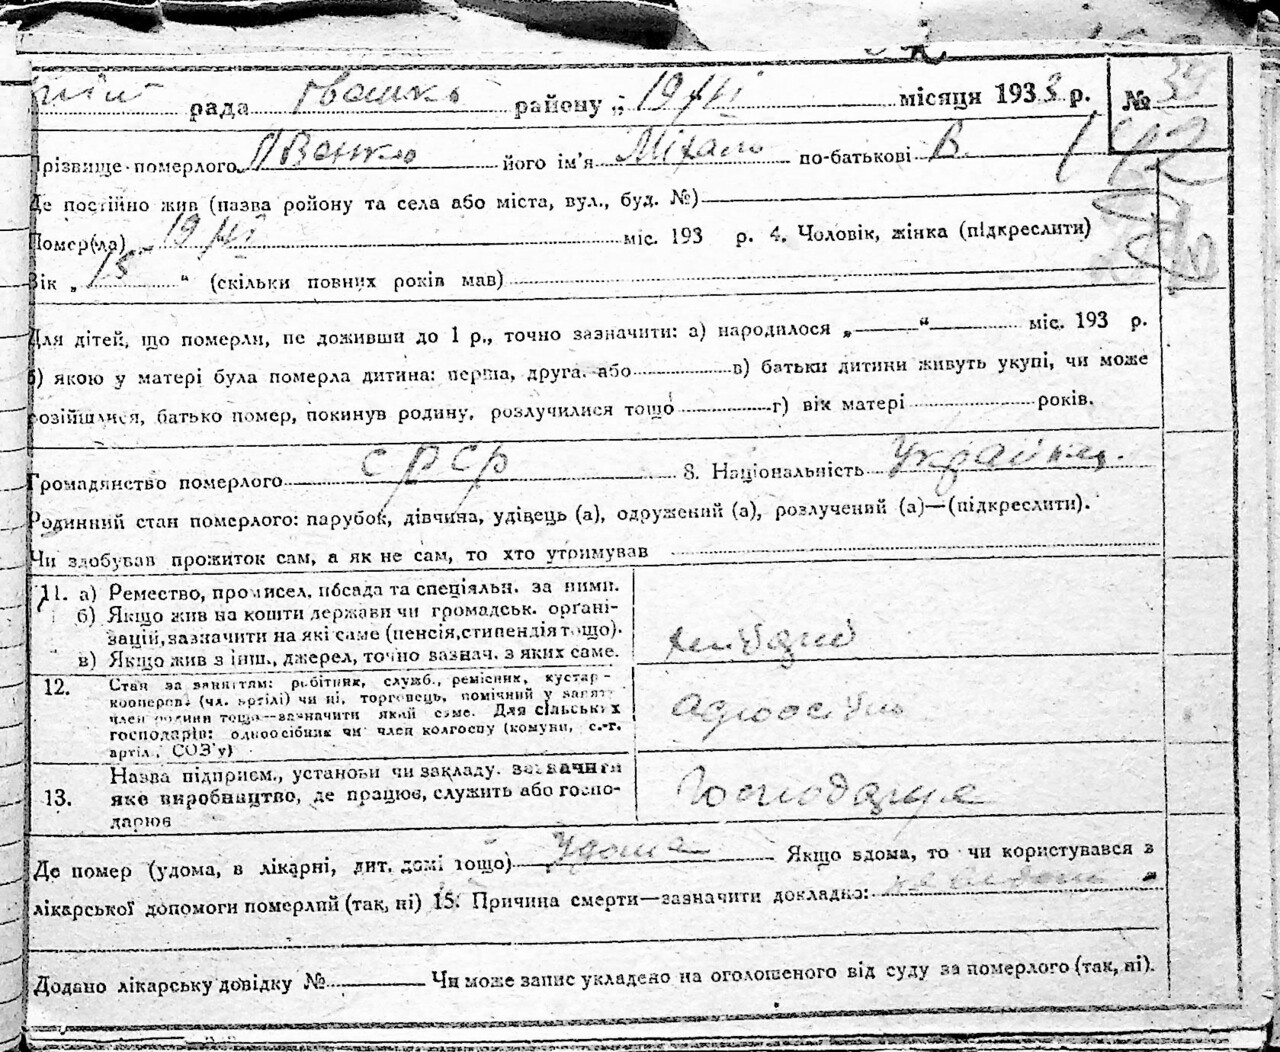 рада району „ 19/VI місяця 1933 р. № 39
Прізвище померлого Івенко його ім'я Міхало по-батькові В.
Де постійно жив (назва ройону та села або міста, вул., буд. №)
Помер(ла) 19/VI міс. 193 р. 4. Чоловік, жінка (підкреслити)
Вік „ 15 “ (скільки повних років мав)
Для дітей, що померли, не доживши до 1 р., точно зазначити: а) народилося „ “ міс. 193 р.
б) якою у матері була померла дитина: перша, друга, або в) батьки дитини живуть укупі, чи може
розійшлися, батько помер, покинув родину, розлучилися тощо г) вік матері років.
Громадянство померлого срср 8. Національність Українец.
Родинний стан померлого: парубок, дівчина, удівець (а), одружений (а), розлучений (а)—(підкреслити).
Чи здобував прожиток сам, а як не сам, то хто утримував
11. а) Ремество, промисел, посада та спеціяльн. за ними.
б) Якщо жив на кошти держави чи громадськ. органі-
зацій, зазначити на які саме (пенсія, стипендія тощо).
в) Якщо жив з інш., джерел, точно зазнач. з яких саме.
12. Стан за заняттям: робітник, служб., ремісник, кустар-
кооперов. (чл. артілі) чи ні, торговець, помічний у занят.
член родини тощо—зазначити який саме. Для сільських
господарів: одноосібник чи член колгоспу (комуни, с.-г.
артіл., СОЗ'у)
13. Назва підприєм., установи чи закладу, зазначити
яке виробництво, де працює, служить або госпо-
дарює
Господарує
Де помер (удома, в лікарні, дит. домі тощо) Удома Якщо вдома, то чи користувався з
лікарської допомоги померлий (так, ні) 15. Причина смерти—зазначити докладно:
Додано лікарську довідку № Чи може запис укладено на оголошеного від суду за померлого (так, ні).